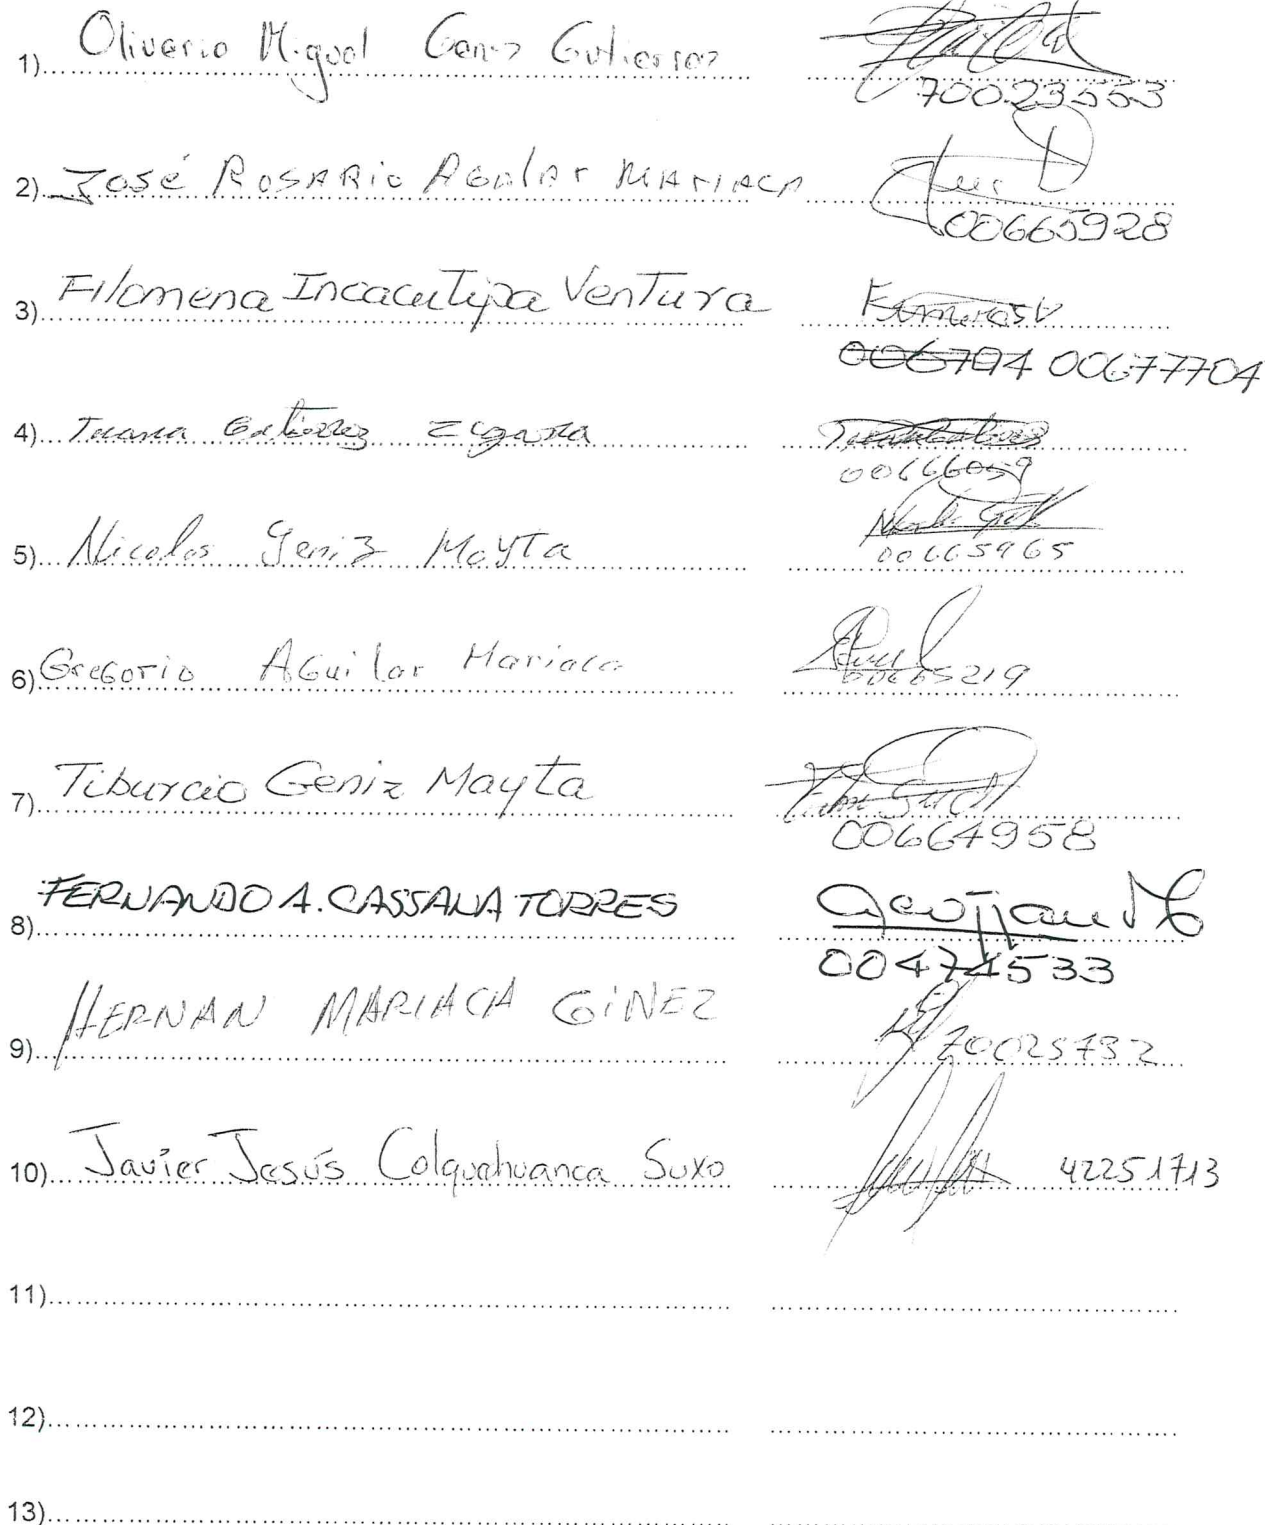 1) Oliverio Miguel Geniz Gutierrez
70023553
2) José ROSARio AGuilar MARIACA
00665928
3) Filomena Incacutipa Ventura
006704 00677704
4) Juana Gutiérrez Zegarra
00666059
5) Nicolas Geniz Mayta
00665965
6) GreGorio AGuilar Mariaca
00665219
7) Tiburcio Geniz Mayta
00664958
8) FERNANDO A. CASSANA TORRES
00474533
9) HERNAN MARIACA GiNEZ
70025732
10) Javier Jesús Colquehuanca Suxo 42251713
11)
12)
13)